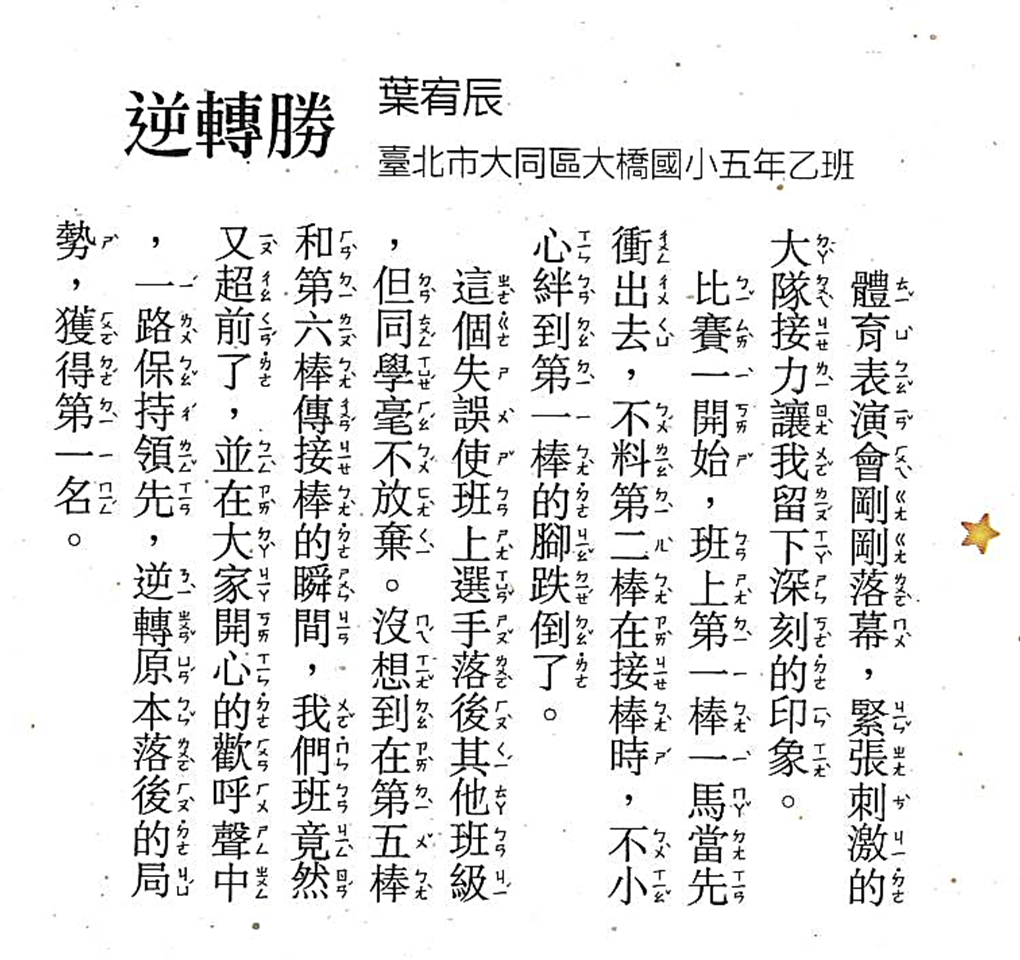 逆轉勝
葉宥辰
臺北市大同區大橋國小五年乙班
體育表演會剛剛落幕，緊張刺激的
大隊接力讓我留下深刻的印象。
比賽一開始，班上第一棒一馬當先
衝出去，不料第二棒在接棒時，不小
心絆到第一棒的腳跌倒了。
這個失誤使班上選手落後其他班級
，但同學毫不放棄。沒想到在第五棒
和第六棒傳接棒的瞬間，我們班竟然
又超前了，並在大家開心的歡呼聲中
，一路保持領先，逆轉原本落後的局
勢，獲得第一名。